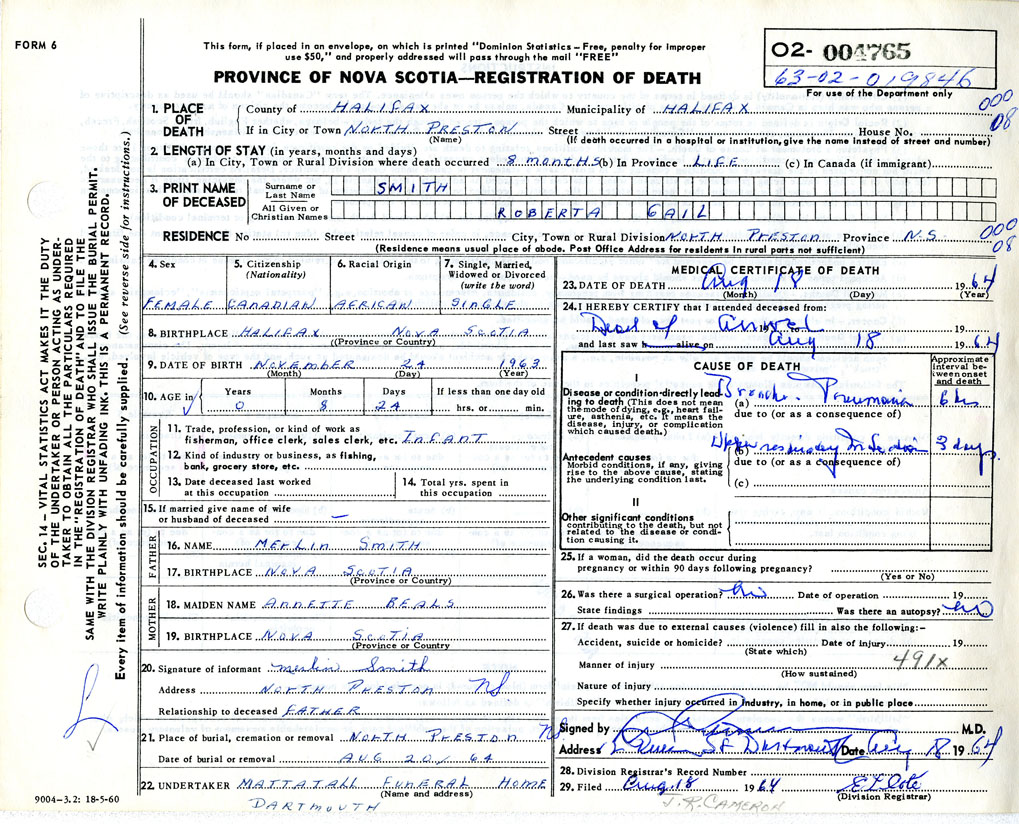 FORM 6
This form, if placed in an envelope, on which is printed "Dominion Statistics – Free, penalty for improper
use $50," and properly addressed will pass through the mail "FREE"
PROVINCE OF NOVA SCOTIA—REGISTRATION OF DEATH
02- 004765
63-02-019846
For use of the Department only
000
08
1. PLACE OF DEATH
County of HALIFAX Municipality of HALIFAX
If in City or Town NORTH PRESTON Street House No.
(Name) (If death occurred in a hospital or institution, give the name instead of street and number)
2. LENGTH OF STAY (in years, months and days)
(a) In City, Town or Rural Division where death occurred 8 MONTHS (b) In Province LIFE (c) In Canada (if immigrant)
3. PRINT NAME OF DECEASED
Surname or Last Name SMITH
All Given or Christian Names ROBERTA GAIL
RESIDENCE No Street City, Town or Rural Division NORTH PRESTON Province N.S.
000
08
(Residence means usual place of abode. Post Office Address for residents in rural parts not sufficient)
4. Sex
FEMALE
5. Citizenship
(Nationality)
CANADIAN
6. Racial Origin
AFRICAN
7. Single, Married,
Widowed or Divorced
(write the word)
SINGLE
8. BIRTHPLACE HALIFAX NOVA SCOTIA
(Province or Country)
9. DATE OF BIRTH NOVEMBER 24 1963
(Month) (Day) (Year)
10. AGE in
Years Months Days If less than one day old
0 8 24 hrs. or min.
OCCUPATION
11. Trade, profession, or kind of work as
fisherman, office clerk, sales clerk, etc. INFANT
12. Kind of industry or business, as fishing,
bank, grocery store, etc.
13. Date deceased last worked
at this occupation
14. Total yrs. spent in
this occupation
15. If married give name of wife
or husband of deceased —
FATHER
16. NAME MERLIN SMITH
17. BIRTHPLACE NOVA SCOTIA
(Province or Country)
MOTHER
18. MAIDEN NAME ANNETTE BEALS
19. BIRTHPLACE NOVA SCOTIA
(Province or Country)
20. Signature of informant Merlin Smith
Address NORTH PRESTON NS
Relationship to deceased FATHER
21. Place of burial, cremation or removal NORTH PRESTON NS
Date of burial or removal AUG 20/64
22. UNDERTAKER MATTATALL FUNERAL HOME
(Name and address)
DARTMOUTH
9004–3.2: 18-5-60
MEDICAL CERTIFICATE OF DEATH
23. DATE OF DEATH Aug 18 1964
(Month) (Day) (Year)
24. I HEREBY CERTIFY that I attended deceased from:
Dead of Arrival 19
and last saw h alive on Aug 18 1964
CAUSE OF DEATH
Approximate interval between onset and death
I
Disease or condition directly leading to death (This does not mean the mode of dying, e.g., heart failure, asthenia, etc. It means the disease, injury, or complication which caused death.)
(a) Broncho. Pneumonia 6 hrs
due to (or as a consequence of)
Antecedent causes
Morbid conditions, if any, giving rise to the above cause, stating the underlying condition last.
(b) Upper respiratory Infection 3 days
due to (or as a consequence of)
(c)
II
Other significant conditions
contributing to the death, but not related to the disease or condition causing it.
25. If a woman, did the death occur during
pregnancy or within 90 days following pregnancy?
(Yes or No)
26. Was there a surgical operation? No Date of operation 19
State findings Was there an autopsy? No
27. If death was due to external causes (violence) fill in also the following:–
Accident, suicide or homicide? Date of injury 19
(State which)
Manner of injury 491x
(How sustained)
Nature of injury
Specify whether injury occurred in industry, in home, or in public place
Signed by M.D.
Address Queen St Dartmouth Date Aug 18 1964
28. Division Registrar's Record Number
29. Filed Aug. 18 1964 E L Cote
(Division Registrar)
J. R. CAMERON
SEC. 14 – VITAL STATISTICS ACT MAKES IT THE DUTY
OF THE UNDERTAKER PERSON ACTING AS UNDER-
TAKER TO OBTAIN ALL THE PARTICULARS REQUIRED
IN THE "REGISTRATION OF DEATH" AND TO FILE THE
SAME WITH THE DIVISION REGISTRAR WHO SHALL ISSUE THE BURIAL PERMIT.
WRITE PLAINLY WITH UNFADING INK. THIS IS A PERMANENT RECORD.
Every item of information should be carefully supplied. (See reverse side for instructions.)